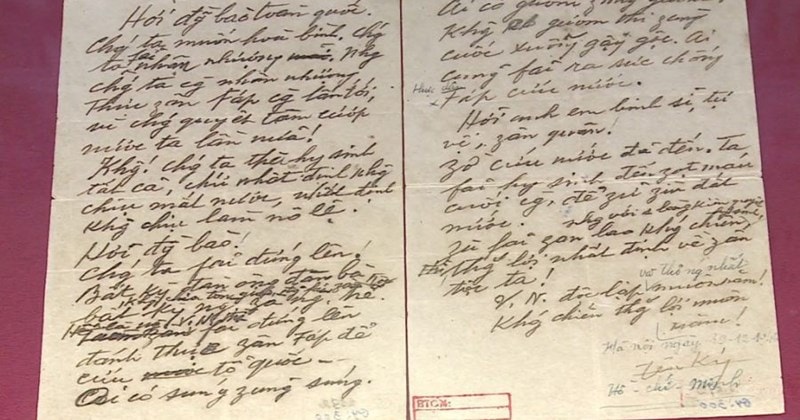 Hỡi đồng bào toàn quốc.
Chg ta muốn hoà bình. Chg
ta fải nhân nhượng. Nhg
chg ta cg nhân nhượng
thực zân Fáp cg lấn tới,
vì chg quyết tâm cướp
nước ta lần nữa!
Khg! chg ta thà hy sinh
tất cả, chứ nhất định khg
chịu mất nước, nhất định
khg chịu làm nô lệ!
Hỡi đg bào!
Chg ta fải đứng lên!
Bất kỳ đàn ông đàn bà
bất kỳ ng zà ng trẻ.
fải đứng lên
đánh thực zân Fáp để
cứu tổ quốc —
Ai có súng zùng súng.
Ai có gươm zùng gươm.
Khg gươm thì zùng
cuốc xuổng gậy gộc. Ai
cũng fải ra sức chống
thực dân
Fáp cứu nước.
Hỡi anh em binh sĩ, tự
vệ, zân quân!
Zờ cứu nước đã đến. Ta
fải hy sinh đến zọt máu
cuối cg, để zữ zìn đất
nước.
Zù fải zan lao khg chiến,
thg lợi nhất định về zân
tộc ta!
V.N. độc lập và thống nhất muôn năm!
Khg chiến thg lợi muôn
năm!
Hà nội ngày 19-12-
Hồ - chí - minh
BTCM: